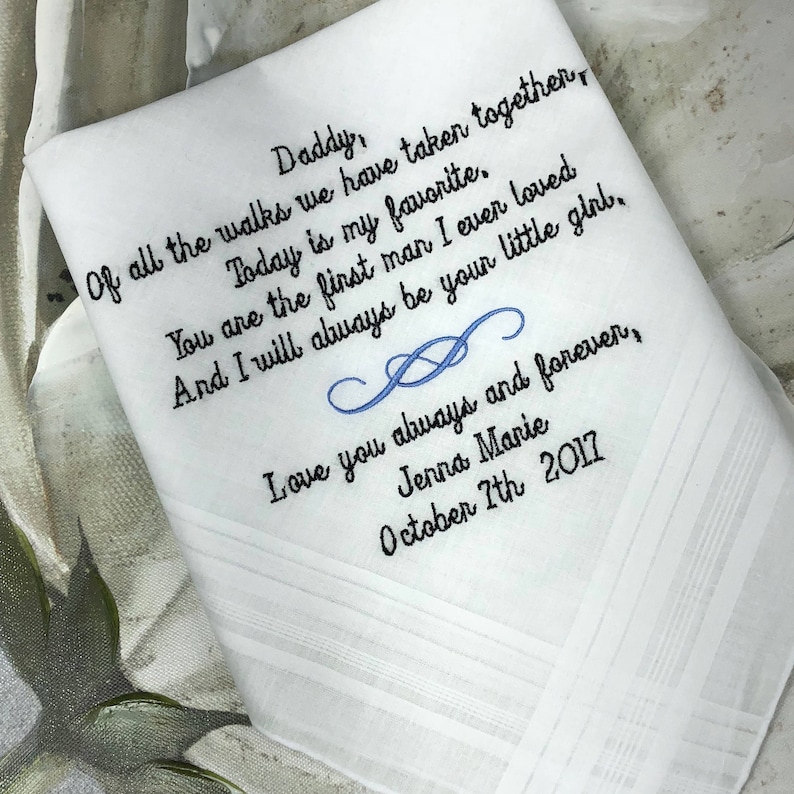 Daddy,
Of all the walks we have taken together,
Today is my favorite.
You are the first man I ever loved
And I will always be your little girl.
Love you always and forever,
Jenna Marie
October 7th 2017